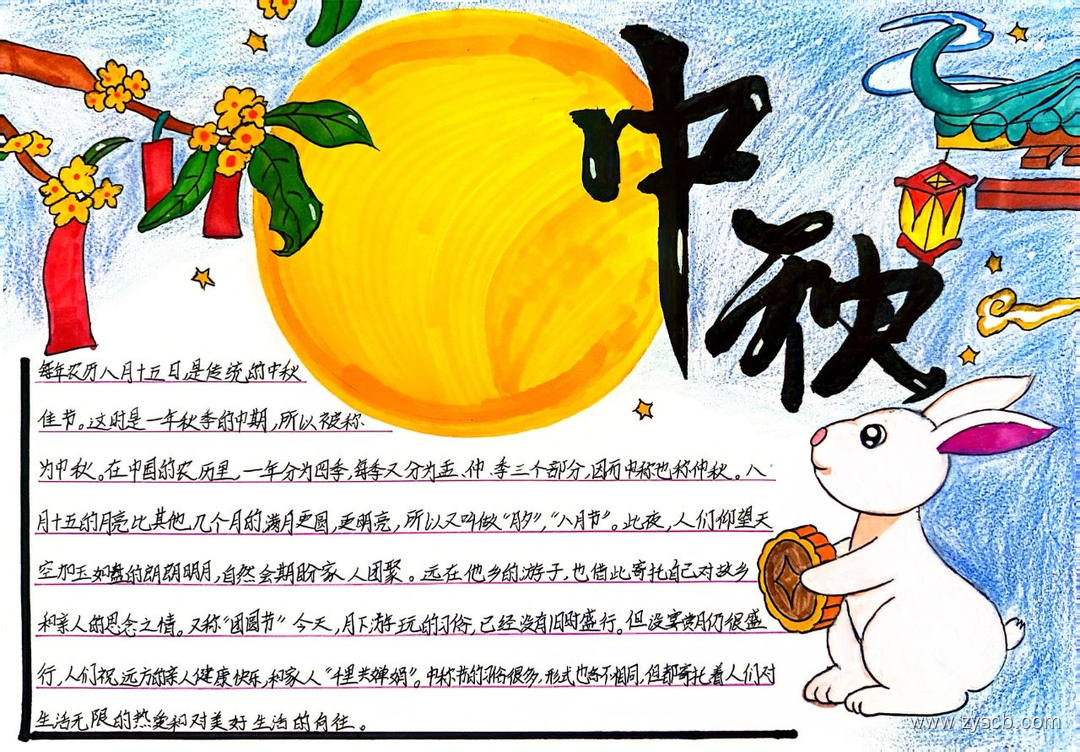 中秋
每年农历八月十五日,是传统的中秋
佳节。这时是一年秋季的中期,所以被称
为中秋。在中国的农历里,一年分为四季,每季又分为孟、仲、季三个部分,因而中秋也称仲秋。八
月十五的月亮比其他几个月的满月更圆,更明亮,所以又叫做“月夕”,“八月节”。此夜,人们仰望天
空如玉如盘的朗朗明月,自然会期盼家人团聚。远在他乡的游子,也借此寄托自己对故乡
和亲人的思念之情。又称“团圆节”今天,月下游玩的习俗,已经没有旧时盛行。但设宴赏月仍很盛
行,人们祝远方的亲人健康快乐,和家人“千里共婵娟”。中秋节的习俗很多,形式也各不相同,但都寄托着人们对
生活无限的热爱和对美好生活的向往。
www.zyscb.com